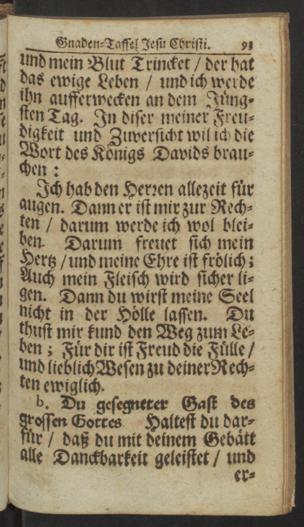 Gnaden-Taffel Jesu Christi. 93
und mein Blut Trincket / der hat
das ewige Leben / und ich werde
ihn aufferwecken an dem Jüng-
sten Tag. In diser meiner Freu-
digkeit und Zuversicht wil ich die
Wort des Königs Davids brau-
chen :
Ich hab den Herren allezeit für
augen. Dann er ist mir zur Rech-
ten / darum werde ich wol blei-
ben. Darum freuet sich mein
Hertz / und meine Ehre ist frölich;
Auch mein Fleisch wird sicher li-
gen. Dann du wirst meine Seel
nicht in der Hölle lassen. Du
thust mir kund den Weg zum Le-
ben ; Für dir ist Freud die Fülle /
und lieblich Wesen zu deiner Rech-
ten ewiglich.
b. Du gesegneter Gast des
grossen Gottes Haltest du dar-
für / daß du mit deinem Gebätt
alle Danckbarkeit geleistet / und
er-